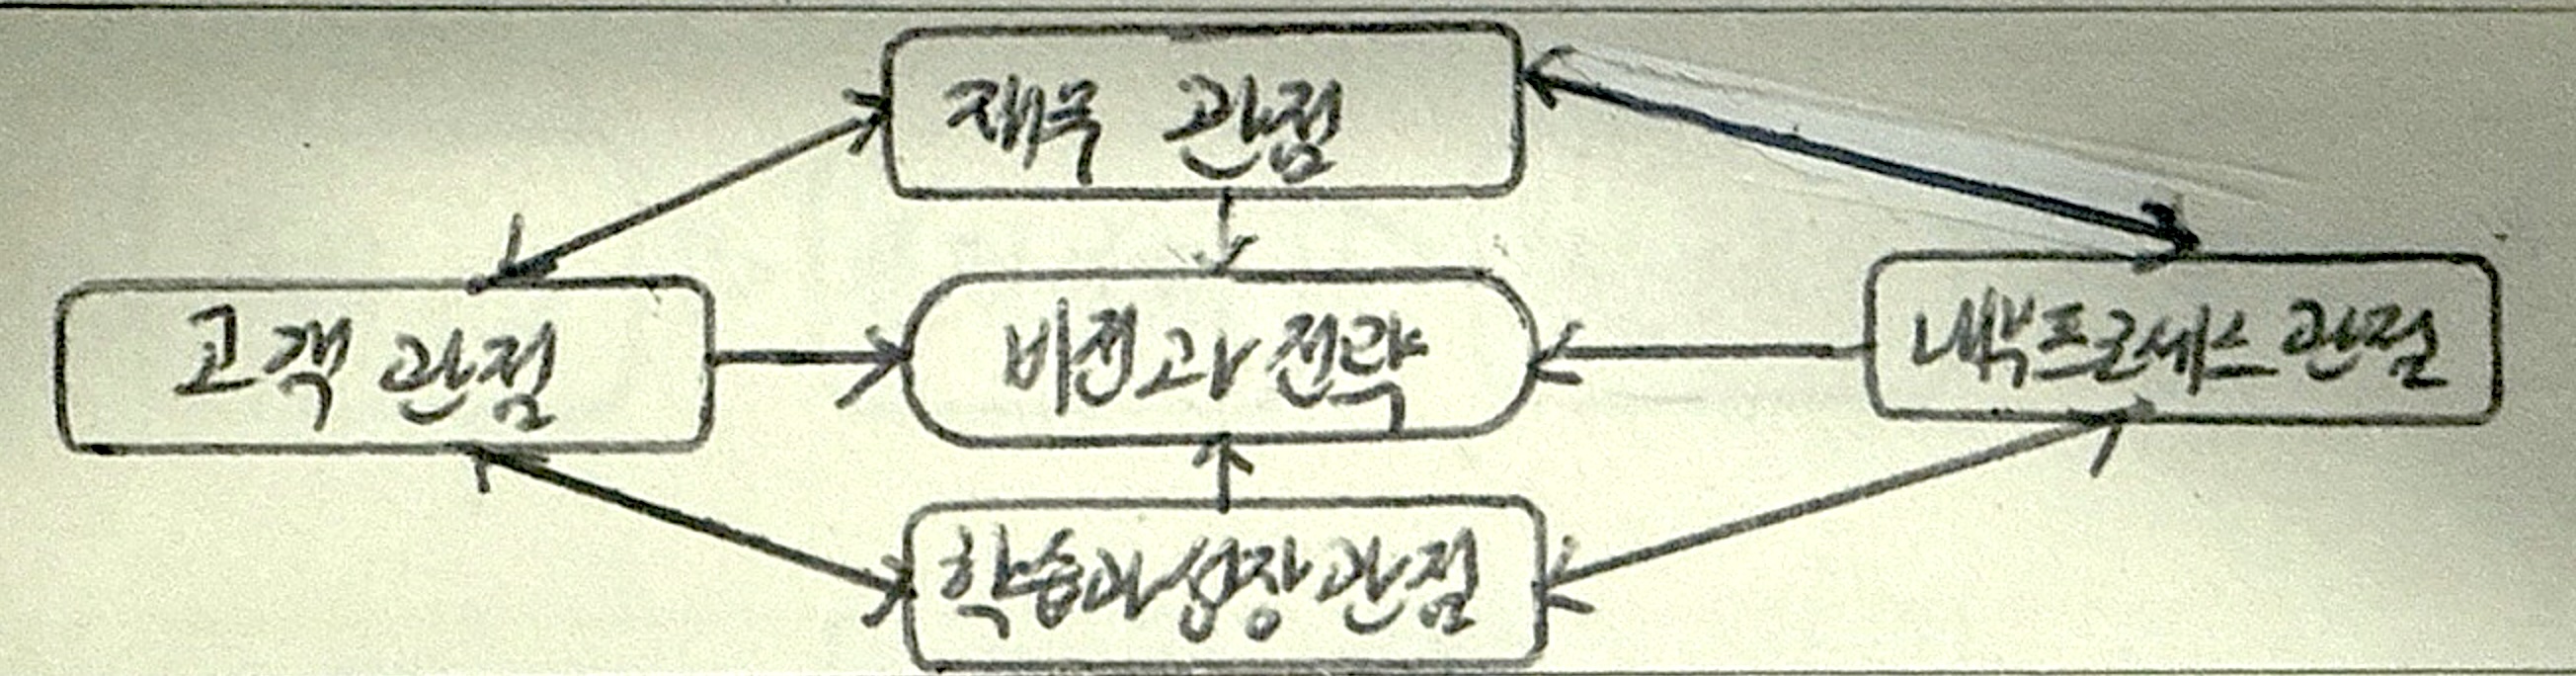 재무 관점
고객 관점
비전과 전략
내부프로세스 관점
학습과 성장 관점